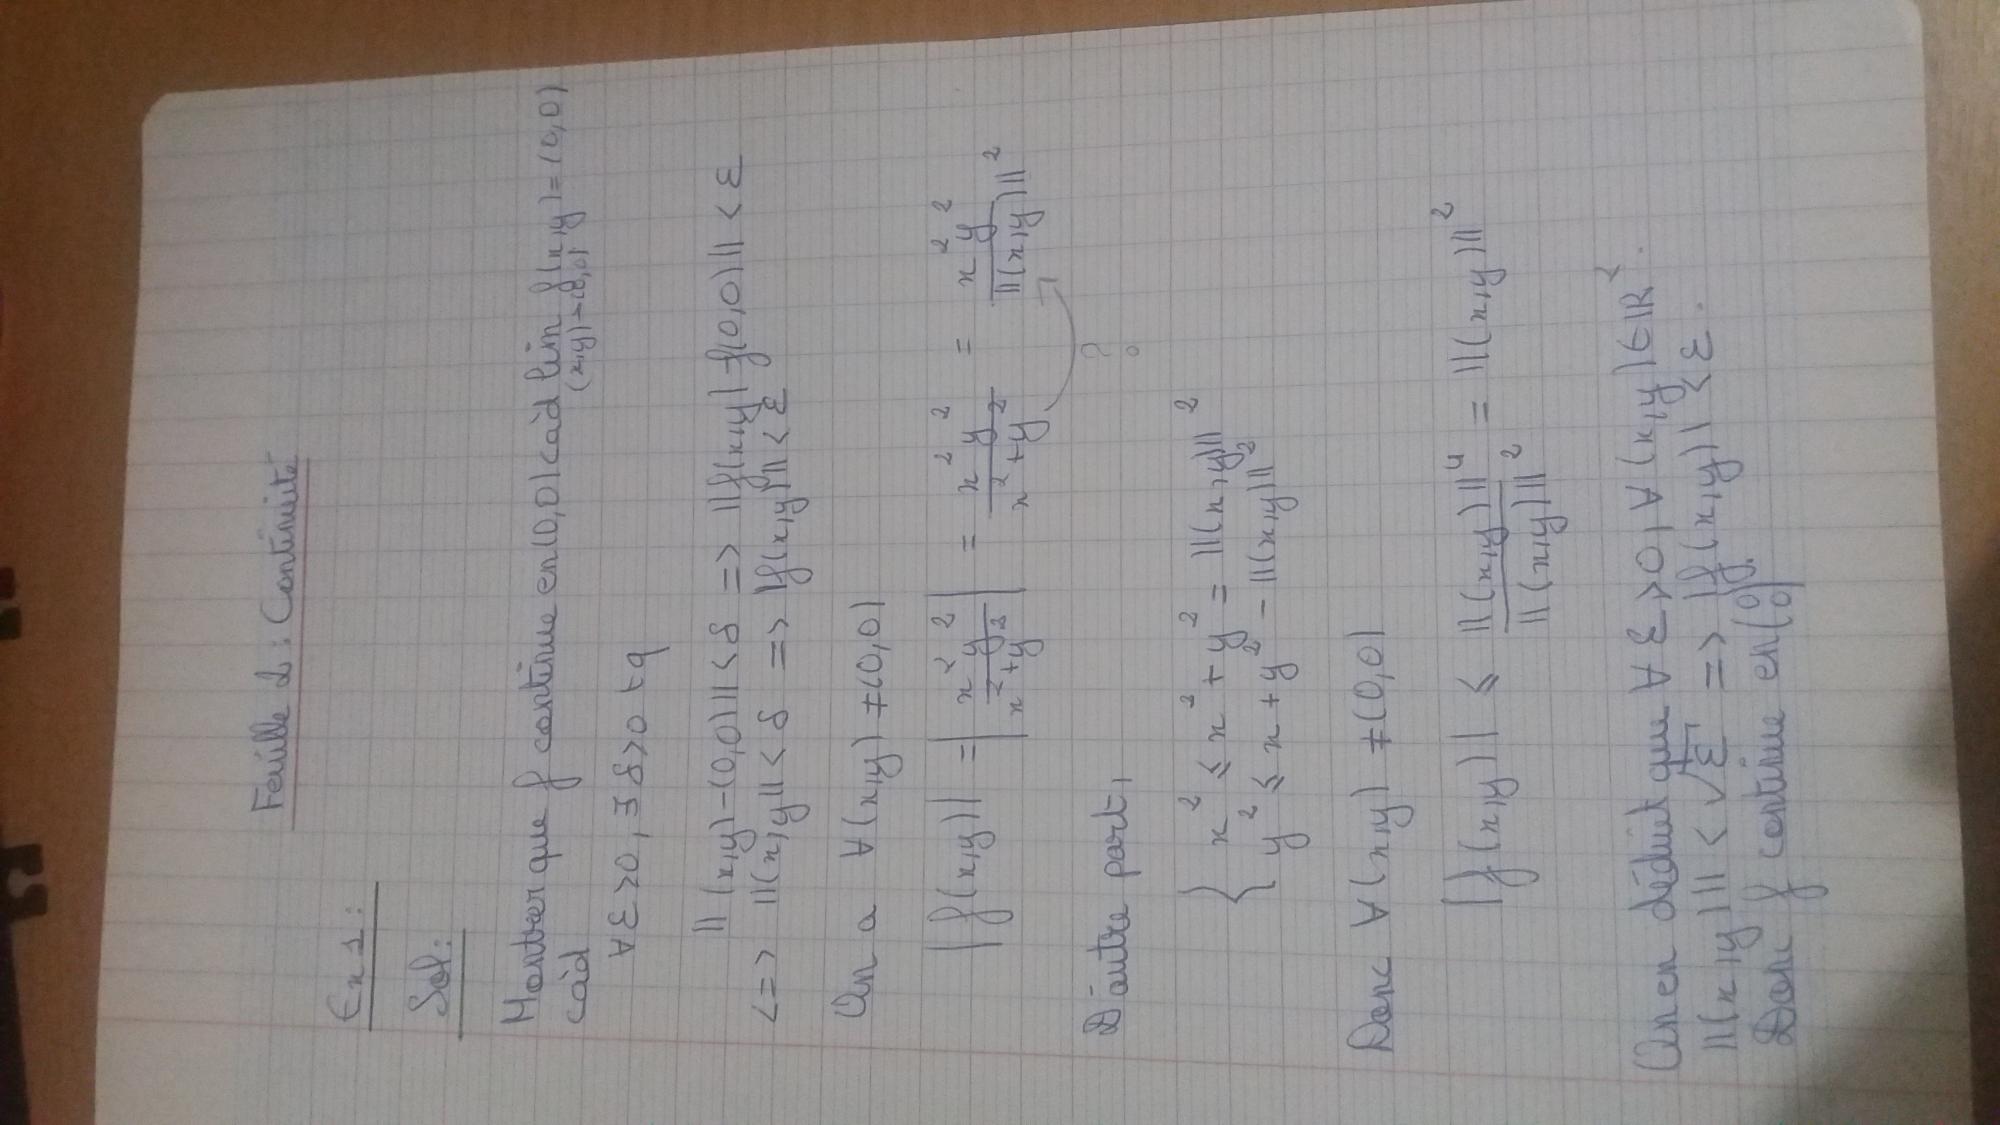 Feuille 2 : Continuité
Ex 1 :
Sol :
Montrer que f continue en (0,0) càd lim f(x,y) = (0,0)
(x,y)→(0,0)
càd
∀ε>0, ∃δ>0 tq
||(x,y)-(0,0)|| < δ => ||f(x,y) - f(0,0)|| < ε
<=> ||(x,y|| < δ => |f(x,y)|| < ε
On a ∀(x,y) ≠ (0,0)
|f(x,y)| = |x²y²/x²+y²| = x²y²/x²+y² = x²y²/||(x,y)||²
?
D'autre part,
{ x² ≤ x²+y² = ||(x,y)||²
y² ≤ x+y² - ||(x,y)||²
Donc ∀(x,y) ≠ (0,0)
|f(x,y)| ≤ ||(x,y)||⁴/||(x,y)||² = ||(x,y)||²
On en déduit que ∀ε>0, ∀(x,y)∈ℝ².
||(x,y)|| < √ε => |f(x,y)| < ε.
Donc f continue en (0 0)